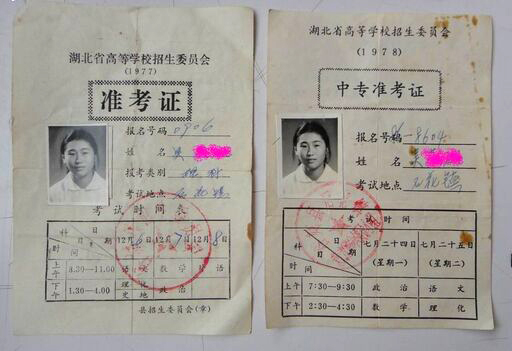 湖北省高等学校招生委员会
(1977)
准考证
报名号码 0906
姓名 吴
报考类别
考试地点 石花镇
考试时间表
科目 日期 时间 12月6日 12月7日 12月8日
上午 8.30—11.00 语文 数学
下午 1.30—4.00 理化 史地 政治
县招生委员会(章)
湖北省高等学校招生委员会
(1978)
中专准考证
报名号码 06-8604
姓名 吴
考试地点 石花镇
考试时间
科目 日期 时间 七月二十四日(星期一) 七月二十五日(星期二)
上午 7:30—9:30 政治 语文
下午 2:30—4:30 数学 理化